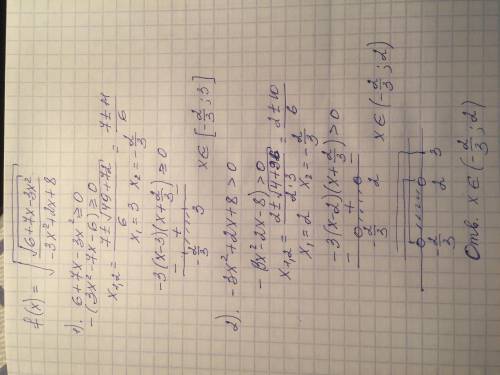 f(x) = √(√(6+7x-3x²) / (-3x²+2x+8))
1). 6+7x-3x² ≥ 0
-(3x²-7x-6) ≥ 0
x₁,₂ = (7±√(49+72))/6 = (7±11)/6
x₁ = 3 x₂ = -2/3
-3(x-3)(x+2/3) ≥ 0
- + -
-2/3 3 x∈[-2/3; 3]
2). -3x²+2x+8 > 0
-(3x²-2x-8) > 0
x₁,₂ = (2±√(4+96))/(2·3) = (2±10)/6
x₁ = 2 x₂ = -2/3
-3(x-2)(x+2/3) > 0
- + -
-2/3 2 x∈(-2/3; 2)
-2/3 2 3
Отв. x∈(-2/3; 2)